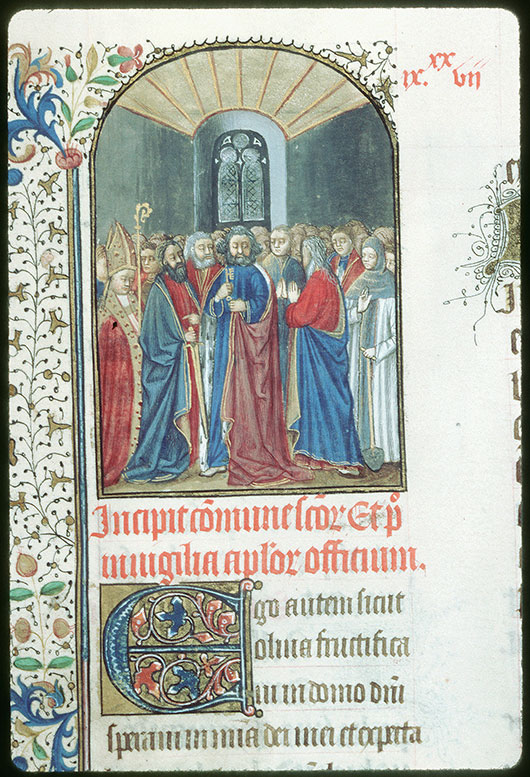 ix.xx vii
Incipit cōmune scōr Et pº
in vigilia apłor officium.
Ego autem sicut
oliva fructifica
vi in domo dnī
speravi in mīa dei mei et expecta